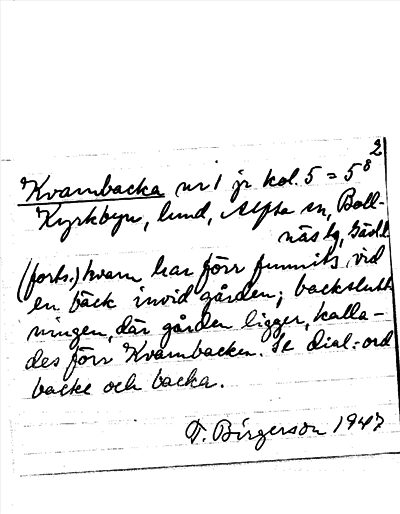 2
Kvarnbacka nr 1 jr kol. 5 = 5⁸
Kyrkbyn, lund, Alfta sn, Boll-
näs tg, Gävl
(forts.) kvarn har förr funnits vid
en bäck invid gården; backslutt
ningen, där gården ligger, kalla-
des förr Kvarnbacken. Se dial:ord
backe och backa.
T. Birgerson 1947